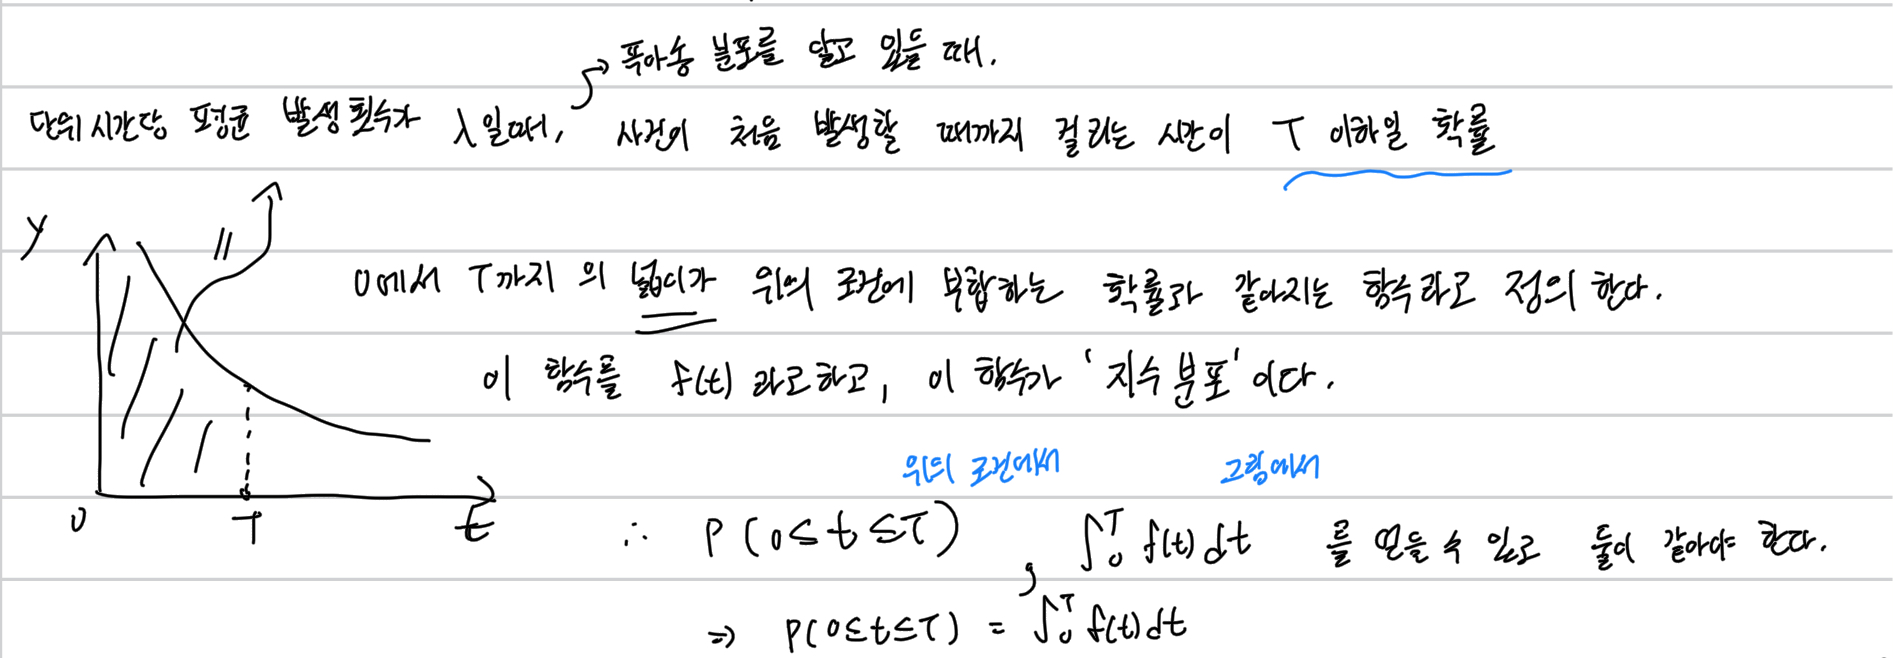 푸아송 분포를 알고 있을 때.
단위 시간당 평균 발생 횟수가 λ일때, 사건이 처음 발생할 때까지 걸리는 시간이 T 이하일 확률
y
//
0에서 T까지의 넓이가 위의 조건에 부합하는 확률과 같아지는 함수라고 정의한다.
이 함수를 f(t) 라고하고, 이 함수가 '지수분포'이다.
위의 조건에서 그림에서
0 T t
∴ P(0≤t≤T) , ∫₀ᵀ f(t)dt 를 얻을 수 있고 둘이 같아야 한다.
⇒ P(0≤t≤T) = ∫₀ᵀ f(t)dt